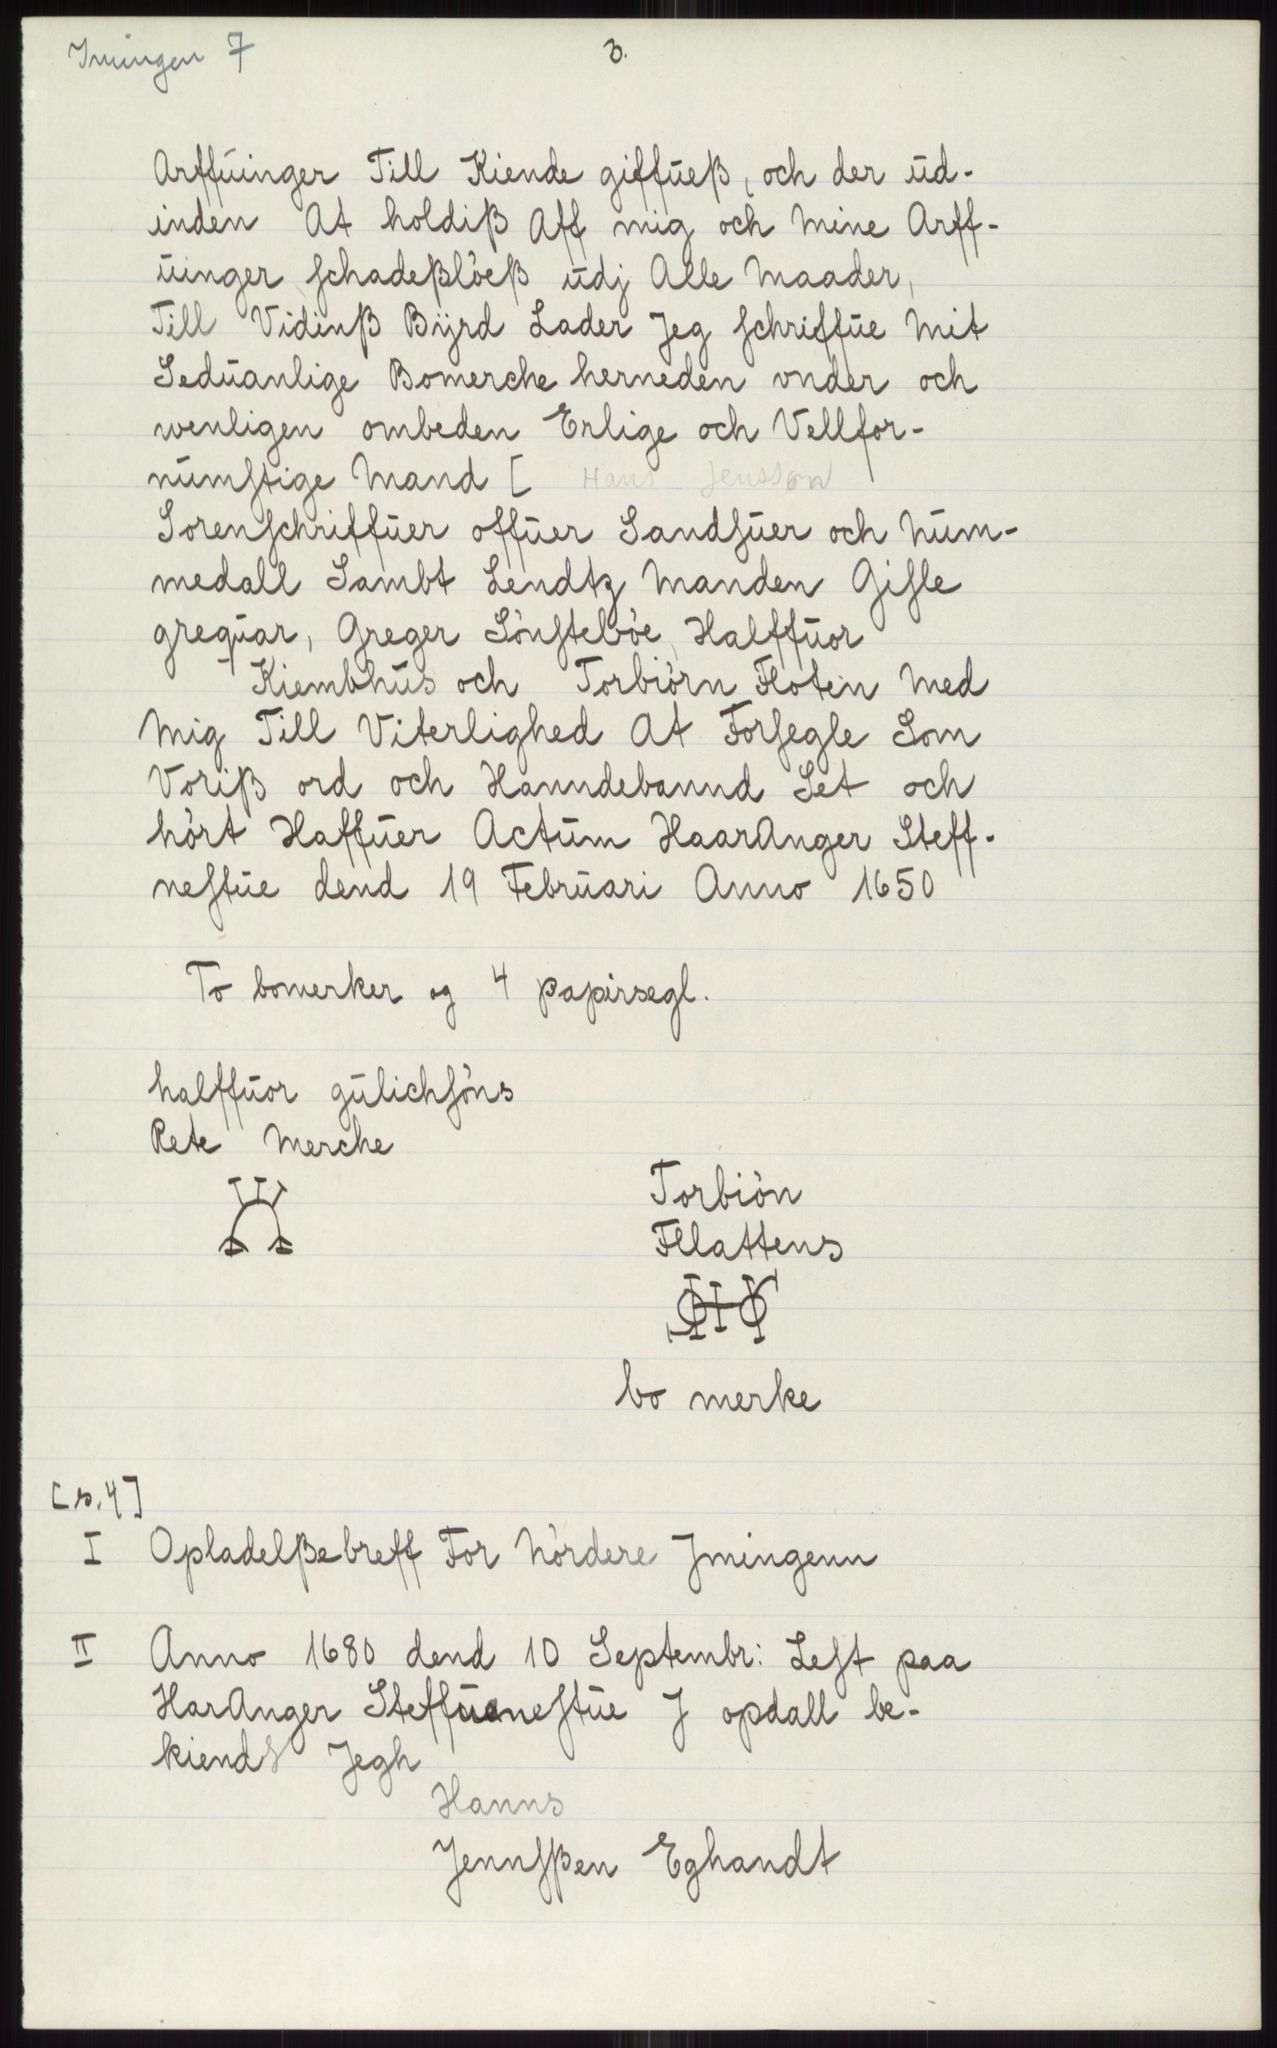 Imingen 7
3.
Arffuinger Till Kiende giffueß, och der ud-
inden At holdiß Aff mig och Mine Arff-
uinger schadeßlöeß udj Alle Maader,
Till Vidinß Byrd Lader Jeg schriffue Mit
Seduanlige Bomerche herneden vnder och
wenligen ombeden Erlige och Vellfor-
numstige Mand [ Hans Jensson
Sorenschriffuer offuer Sandsuer och Num-
medall Sambt Lendtz Manden Gisle
grequar, Greger Sönsteböe, Halffuor
Kiembhus och Torbiörn Floten Med
Mig Till Viterlighed At Forsegle Som
Voriß ord och Hanndebannd Set och
hört Haffuer Actum HaarAnger Steff-
nestue dend 19 Februari Anno 1650
To bomerker og 4 papirsegl.
halffuor gulichsöns
Rete Merche
Torbiön
Fllattens
bo merke
[s. 4]
I Opladelßebreff For Nördere Jmingenn
II Anno 1680 dend 10 Septembr: Lest paa
HarAnger Steffuenestue J opdall be-
kiends Jegh
Hanns
Jennsßen Eghandt